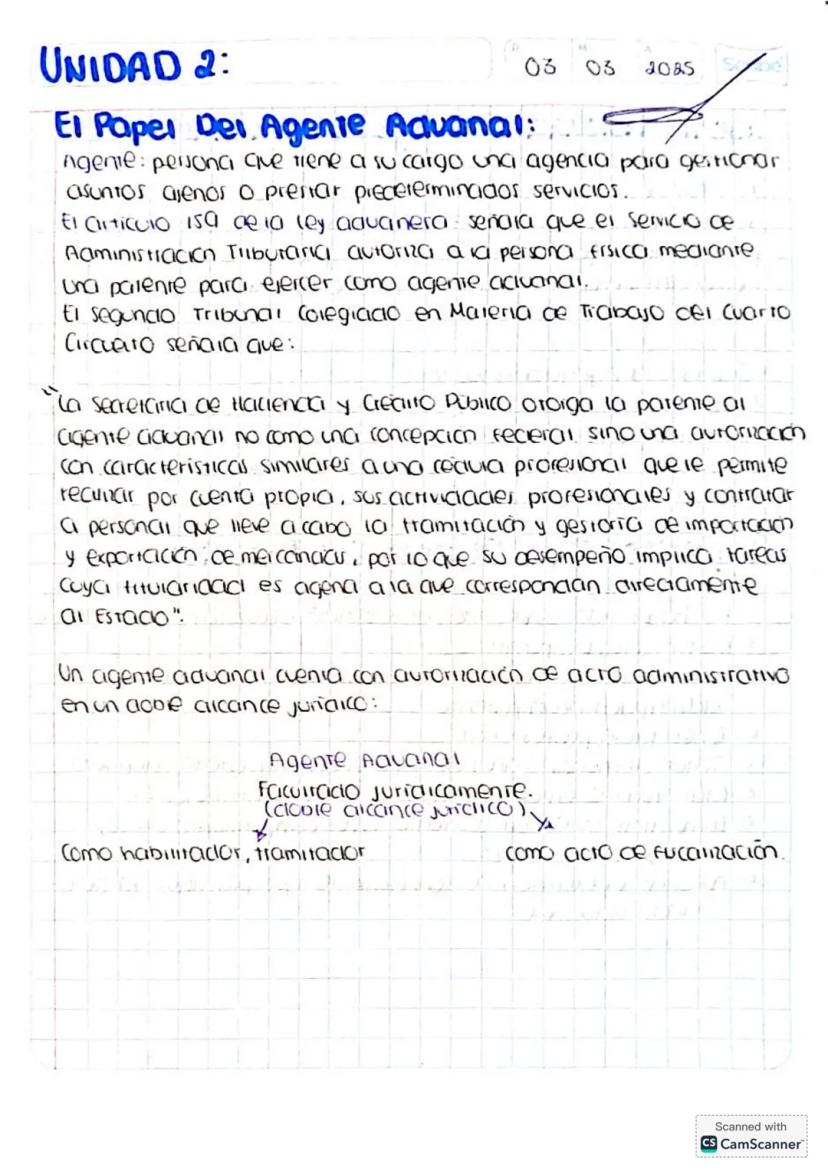 UNIDAD 2:
D M A
03 03 2025
Scribe
El Papel Del Agente Aduanal:
Agente: persona que tiene a su cargo una agencia para gestionar
asuntos ajenos o prestar predeterminados servicios.
El articulo 159 de la ley aduanera señala que el servicio de
Administración Tributaria autoriza a la persona física mediante
una patente para ejercer como agente aduanal.
El segundo Tribunal Colegiado en Materia de Trabajo del Cuarto
Circuito señala que:
"La Secretaria de Hacienda y Crédito Público otorga la patente al
agente aduanal no como una concepción federal sino una autorización
con características similares a una cédula profesional que le permite
recundar por cuenta propia, sus actividades profesionales y contratar
a personal que lleve a cabo la tramitación y gestoria de importación
y exportación de mercancias, por lo que su desempeño implica tareas
cuya titularidad es agena a la que correspondan directamente
al Estado".
Un agente aduanal cuenta con autorización de acto administrativo
en un doble alcance jurídico:
Agente Aduanal
Facultado jurídicamente.
(doble alcance jurídico)
Como habilitador, tramitador
como acto de fucalización.
Scanned with
CS CamScanner